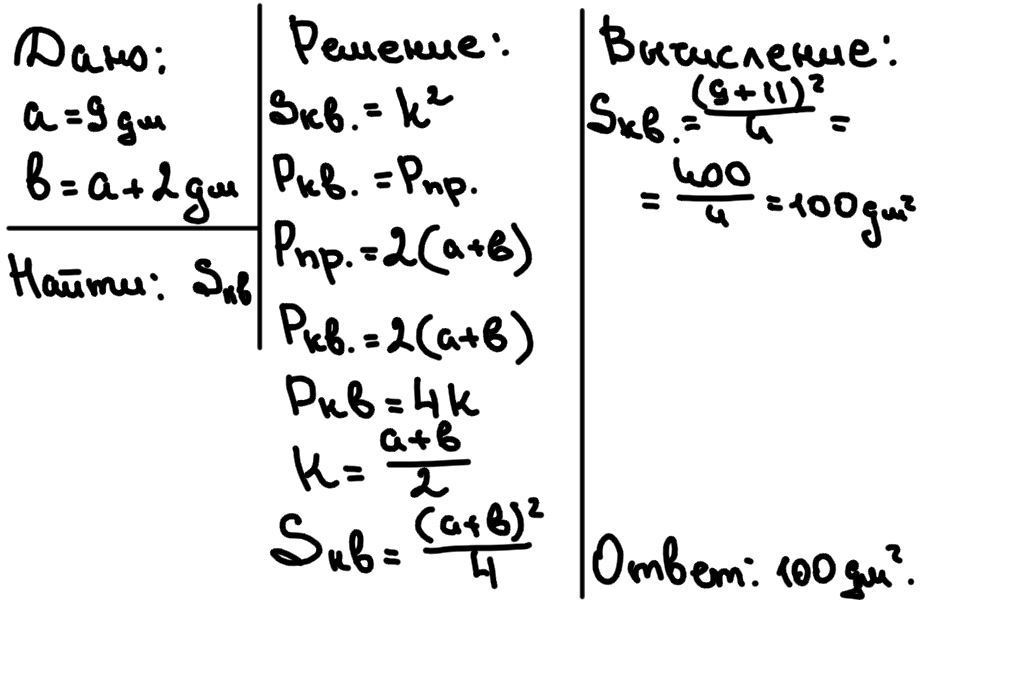 Дано:
a = 9 дм
в = a + 2 дм
Найти: Sкв
Решение:
Sкв. = k²
Pкв. = Pпр.
Pпр. = 2(a+в)
Pкв. = 2(a+в)
Pкв = 4k
k = (a+в)/2
Sкв = (a+в)²/4
Вычисление:
Sкв. = (9+11)²/4 =
= 400/4 = 100 дм²
Ответ: 100 дм².